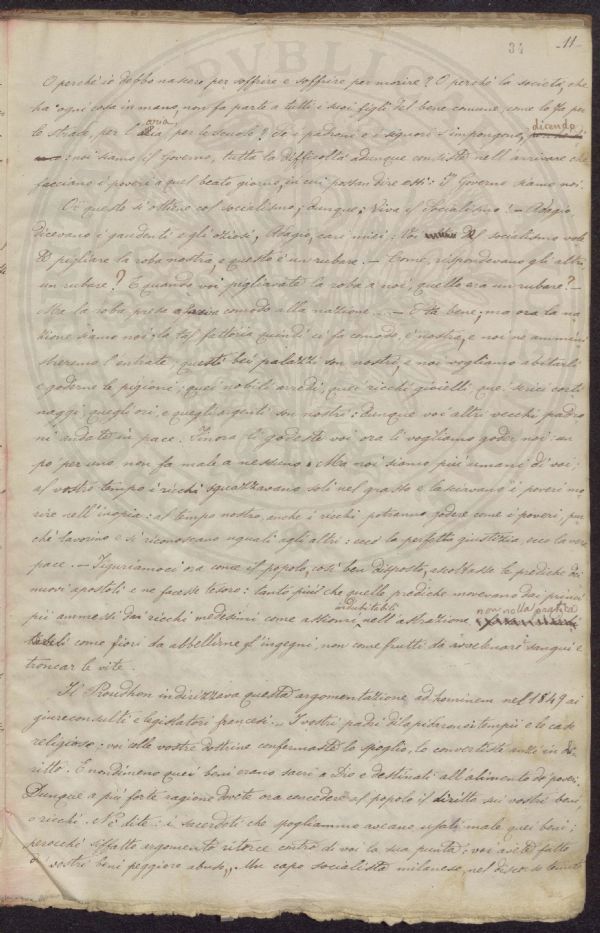 34 11
O perchè io debbo nascere per soffrire e soffrire per morire? O perchè la società, che
ha ogni cosa in mano, non fa parte a tutti i suoi figli del bene comune come lo fa per
le strade, per l'aria, per le scuole? Se i padroni e i signori s'impongono, dicendo
: noi siamo il Governo, tutta la difficoltà adunque consiste nell'arrivare che
facciano i poveri a quel beato giorno, in cui possan dire essi: il Governo siamo noi.
E questo si ottiene col socialismo; dunque: Viva il Socialismo! — Adagio
dicevano i gaudenti e gli oziosi, Adagio, cari miei: Voi col socialismo volete
pigliare la roba nostra e questo è un rubare. — Come, rispondevano gli altri,
un rubare? E quando voi pigliavate la roba a noi, quello era un rubare? —
Ma la roba presa faceva comodo alla nazione... — E bene, ma ora la na
zione siamo noi; la tal fattoria quindi ci fa comodo, è nostra, e noi ne ammini
streremo l'entrate; questi bei palazzi son nostri, e noi vogliamo abitarli
e goderne le pigioni; quei nobili arredi, quei ricchi gioielli, que' serici corti
naggi, quegli ori, e quegli argenti son nostri: dunque voi altri vecchi padro
ni andate in pace. Finora li godeste voi ora li vogliamo goder noi: un
po' per uno non fa male a nessuno. Ma noi siamo più umani di voi;
al vostro tempo i ricchi sguazzavano soli nel grasso e lasciavano i poveri mo
rire nell'inopia: al tempo nostro anche i ricchi potranno godere come i poveri, pur
chè lavorino e si riconoscano uguali agli altri: ecco la perfetta giustizia, ecco la vera
pace. — Figuriamoci ora come il popolo, così ben disposto, ascoltasse le prediche dei
nuovi apostoli e ne facesse tesoro: tanto più che quelle prediche movevano dai princi
pii ammessi dai ricchi medesimi come assiomi indubitabili nell'astrazione non nella pratica
come fiori da abbellirne gl'ingegni, non come frutti da avvelenare sangui e
troncar le vite.
Il Proudhon indirizzava questa argomentazione ad hominem nel 1849 ai
giureconsulti e legislatori francesi. — I vostri padri dilapidarono i tempii e le case
religiose; voi colle vostre dottrine confermaste lo spoglio, lo convertiste anzi in di
ritto. E nondimeno quei beni erano sacri a Dio e destinati all'alimento de' poveri.
Dunque a più forte ragione dovete ora concedere al popolo il diritto sui vostri beni,
o ricchi. Nè dite: i sacerdoti che spogliammo aveano usati male quei beni;
perocchè siffatto argomento ritorce contro di voi la sua punta; voi avete fatto
de' vostri beni peggiore abuso„. Un capo socialista milanese, nel discorso tenuto